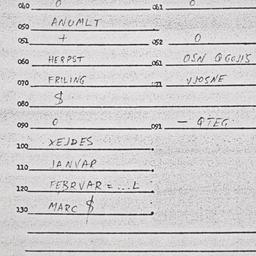 040 0 041 0
050 ANUMLT
051 + 052 0
060 HERPST 061 OSN
070 FRILING
080 $
090 0 091 - GTEG
100 XEJDES
110 JANVAR
120 FEBRVAR = ...L
130 MARC $